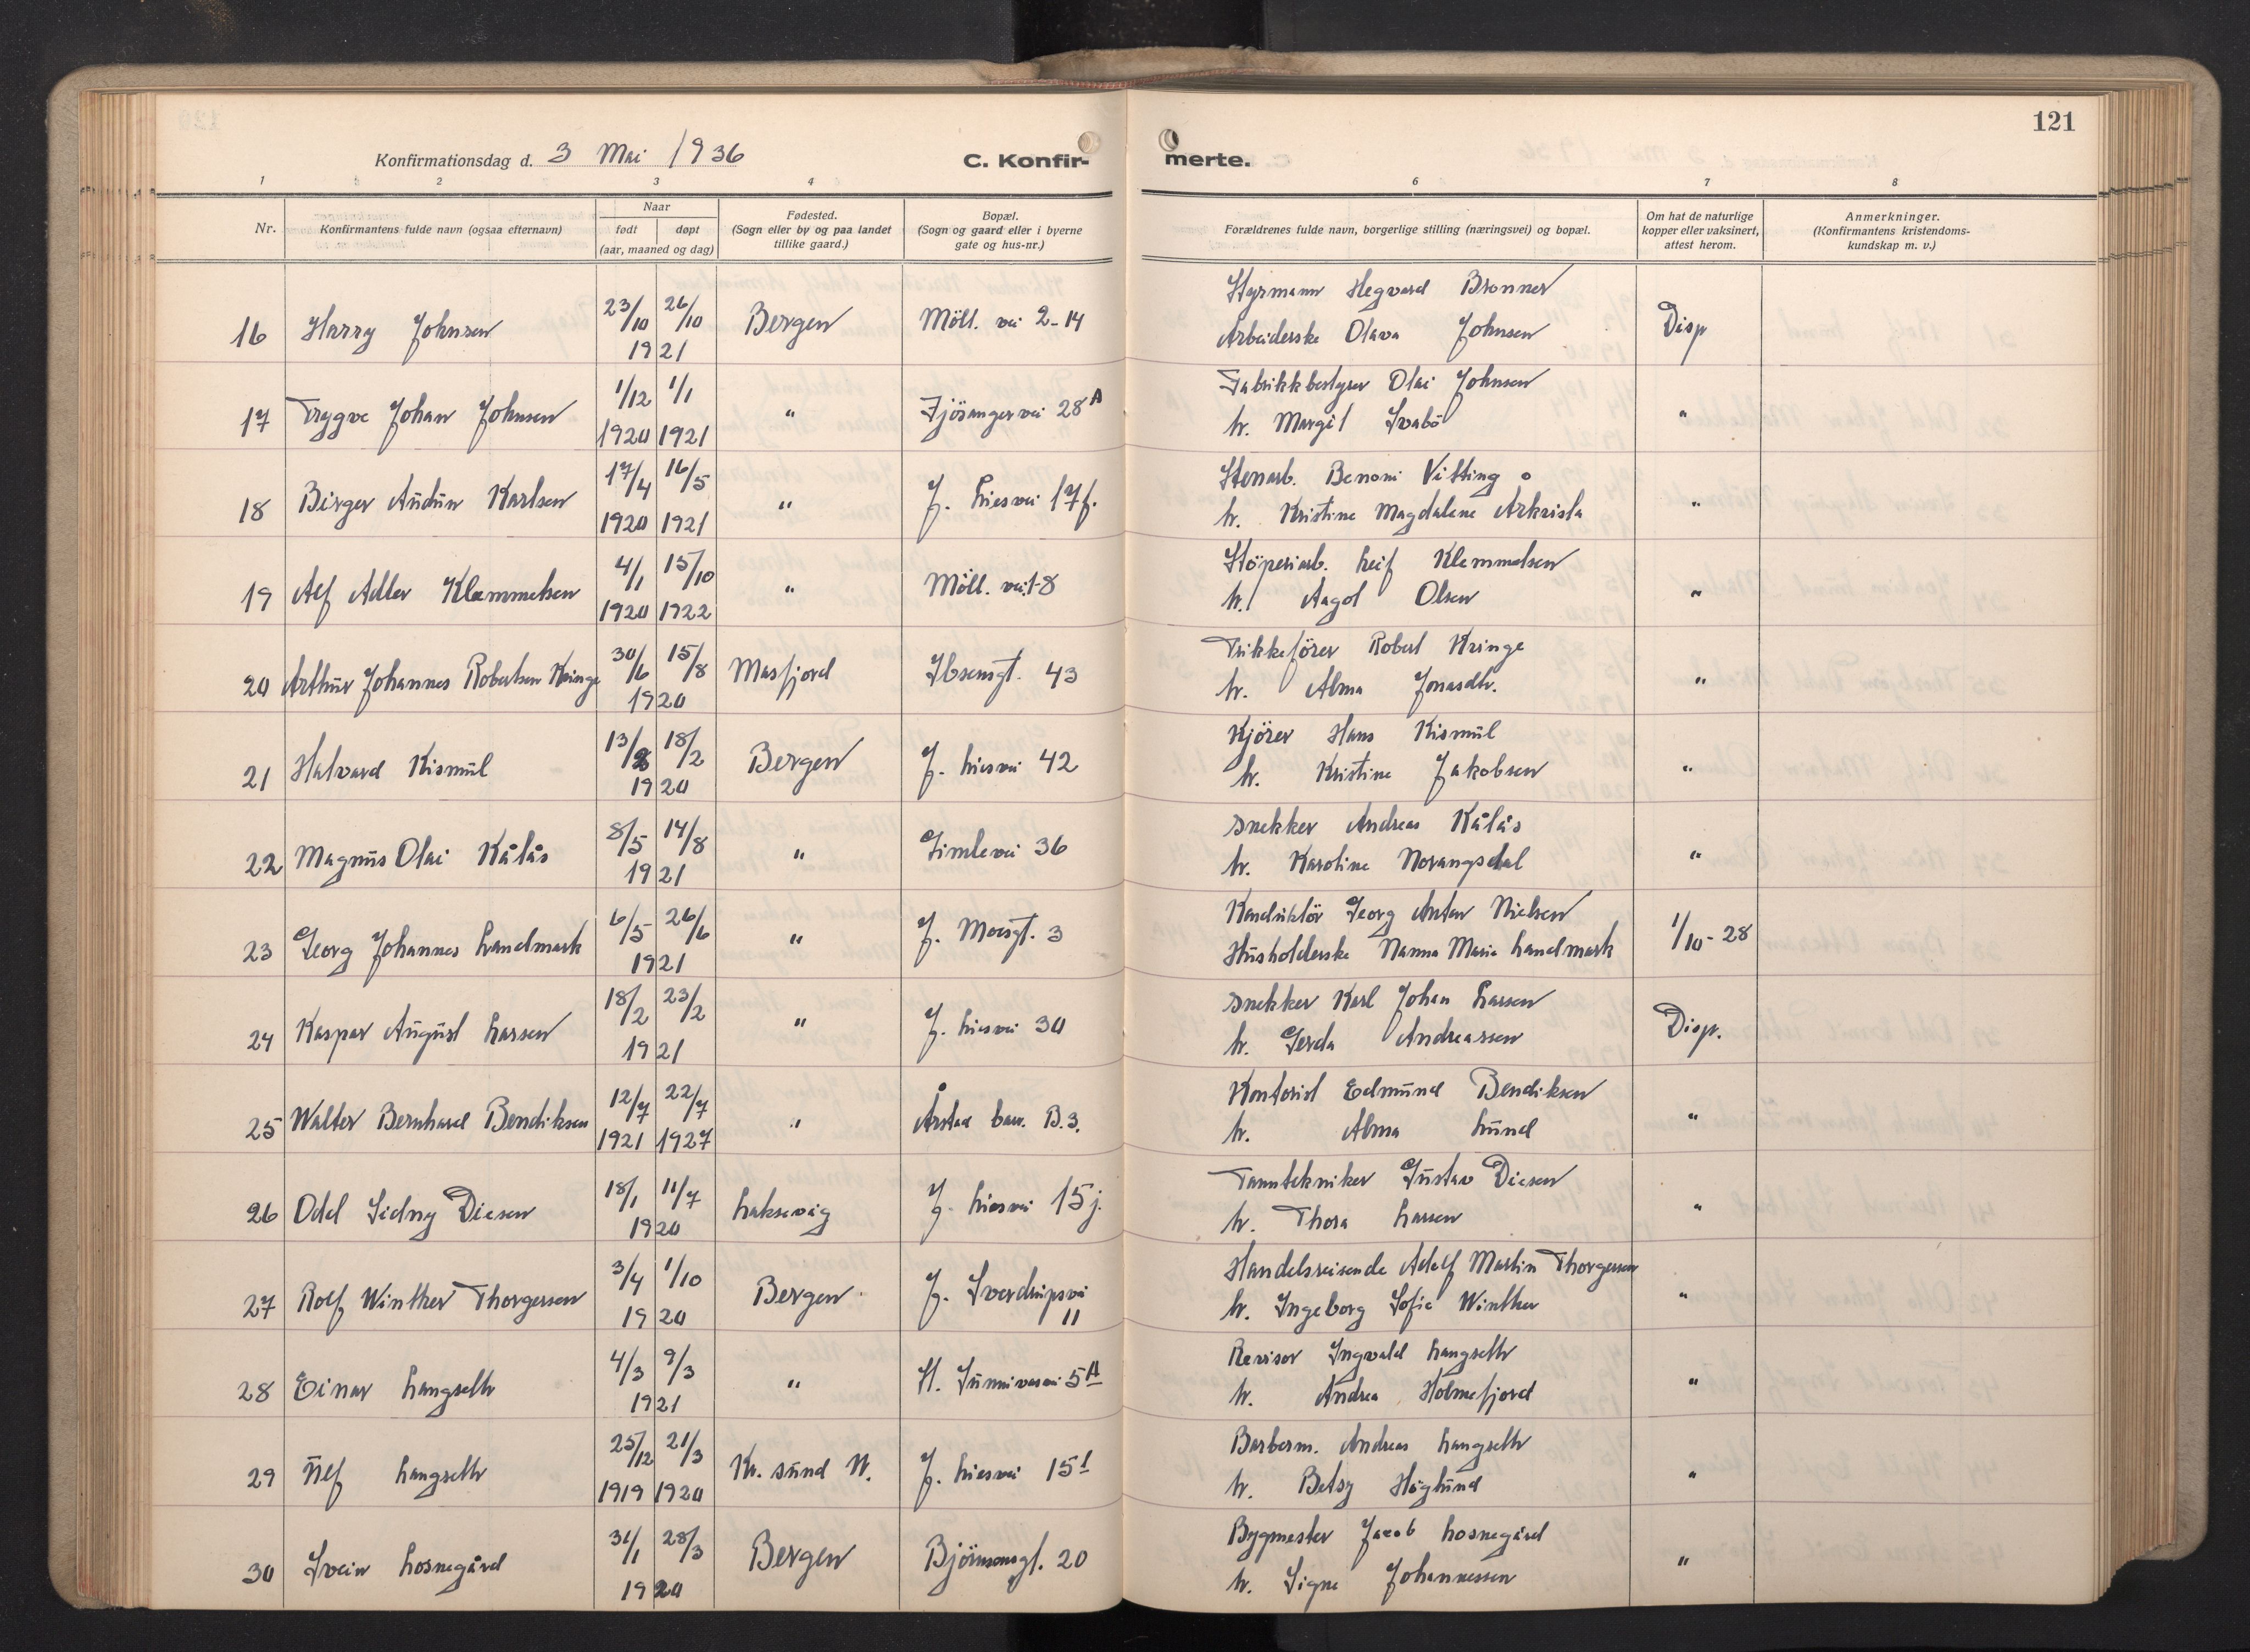 121
Konfirmationsdag d. 3 Mai 1936
C. Konfir-
merte.
1 2 3 4 6 7 8
Nr. Konfirmantens fulde navn (ogsaa efternavn) Naar født døpt (aar, maaned og dag) Fødested. (Sogn eller by og paa landet tillike gaard.) Bopæl. (Sogn og gaard eller i byerne gate og hus-nr.) Forældrenes fulde navn, borgerlige stilling (næringsvei) og bopæl. Om hat de naturlige kopper eller vaksinert, attest herom. Anmerkninger. (Konfirmantens kristendoms-kundskap m. v.)
16 Harry Johnsen 23/10 26/10 1921 Bergen Möll. vei 2-14 Styrmann Hegvard Brønner Disp
Arbeiderske Olava Johnsen
17 Trygve Johan Johnsen 1/12 1920 1/1 1921 " Fjösangervei 28A Fabrikkbestyrer Olai Johnsen "
h. Margit Svabö
18 Birger Audun Karlsen 17/4 1920 16/5 1921 " J. Liesvei 17f. Stenarb. Benoni Vitting o
h. Kristine Magdalene "
19 Alf Adler Klemmetsen 4/1 1920 15/10 1922 " Möll. vei 1-8 Stöperiarb. Leif Klemmetsen "
h. Aagot Olsen
20 Arthur Johannes Robertsen Kringe 30/6 15/8 1920 Masfjord Ibsensgt. 43 Trikkeförer Robert Kringe "
h. Alma Jonasdtr.
21 Halvard Kismul 13/2 18/2 1920 Bergen J. Liesvei 42 Kjörer Hans Kismul "
h. Kristine Jakobsen
22 Magnus Olai Kålås 8/5 14/8 1921 " Gimlevei 36 Snekker Andreas Kålås "
h. Karoline Norangsdal
23 Georg Johannes Landmark 6/5 26/6 1921 " J. Moesgt. 3 Konduktör Georg Anton Nielsen 1/10-28
Husholderske Nanna Marie Landmark
24 Kaspar August Larsen 18/2 23/2 1921 " J. Liesvei 30 Snekker Karl Johan Larsen Disp.
h. Gerda Andreassen
25 Walter Bernhard Bendiksen 12/7 1921 22/7 1927 " Årstad barr. B.3. Kontorist Edmund Bendiksen "
h. Alma Lund
26 Odd Sidny Diesen 18/1 11/7 1920 Laksevåg J. Liesvei 15j. Tanntekniker Gustav Diesen "
h. Thora Larsen
27 Rolf Winther Thorgersen 3/4 1/10 1920 Bergen J. Sverdrupsvei 11 Handelsreisende Adolf Martin Thorgersen "
h. Ingeborg Sofie Winther
28 Einar Langseth 4/3 9/3 1921 " St. Sunnivavei 5A Revisor Ingvald Langseth "
h. Andrea Holmefjord
29 Ulf Langseth 25/12 1919 21/3 1920 Kr. sund N. J. Liesvei 15l Barberm. Andreas Langseth "
h. Betsy Höglund
30 Svein Losnegård 31/1 28/3 1920 Bergen Björnsonsgt. 20 Bygmester Jacob Losnegård "
h. Signe Johannessen